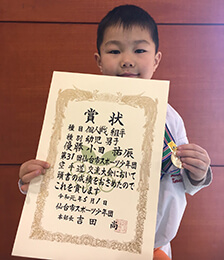 賞状
種目 個人戦 組手
種別 幼児 男子
優勝 小田 祐辰
第31回仙台市スポーツ少年団
空手道交流大会において
頭書の成績をおさめたので
これを賞します
令和元年5月1日
仙台市スポーツ少年団
本部長 吉田 尚